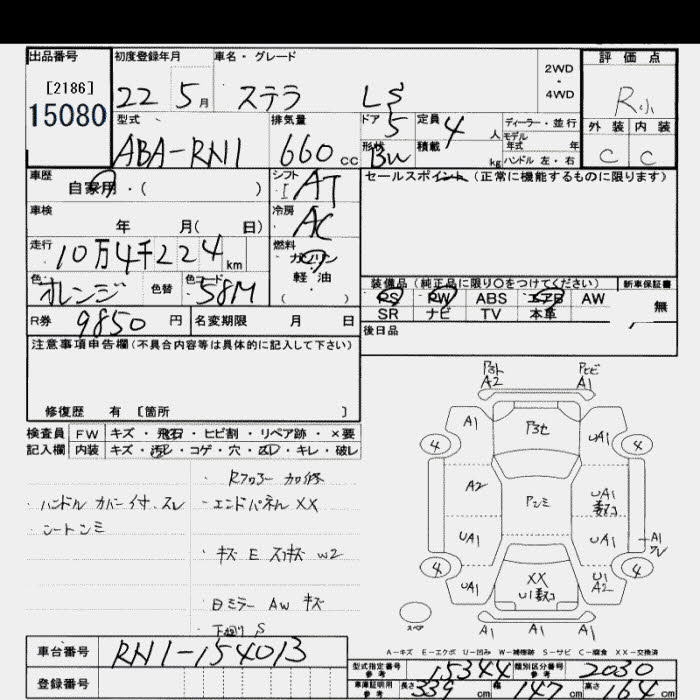 出品番号 初度登録年月 車名・グレード 2WD・4WD 評価点
[2186]
15080
22 5月 ステラ LS
R小
型式 排気量 ドア 定員 ディーラー・並行 外装 内装
ABA-RN1 660cc 5 4人 モデル年式 年 C C
形状 BW 積載 kg ハンドル 左・右
車歴 シフト セールスポイント(正常に機能するものに限ります)
自家用・( ) IAT
車検 冷房
年 月( 日) AC
走行 燃料
10万4千224km ガソリン
軽・油
( )
色 色替 色コード 装備品(純正品に限り〇をつけてください) 新車保証書
オレンジ 58M PS PW ABS エアB AW 無
SR ナビ TV 本革
R券 9850円 名変期限 月 日 後日品
注意事項申告欄(不具合内容等は具体的に記入して下さい)
修復歴 有 [箇所 ]
検査員 FW キズ・飛石・ヒビ割・リペア跡・×要
記入欄 内装 キズ・汚レ・コゲ・穴・凹・キレ・破レ
Rフロアー 加修
ハンドル カバー付.スレ ・エンドパネル XX
シートシミ
・キズ E スリキズ W2
・日ミラー AW キズ
下廻り S
A2 A1
A1 UA1
4 4
A2 UA1
UA1 UA1 A1
4 4
UA1 XX U1 A2
A1 A1 A1
スペア
A-キズ E-エクボ U-凹み W-補修跡 S-サビ C-腐食 XX-交換済
車台番号 RN1-154013
型式指定番号 参考 15344 類別区分番号 参考 2030
登録番号
車庫証明用 参考 長さ 339cm 幅 147cm 高さ 164cm